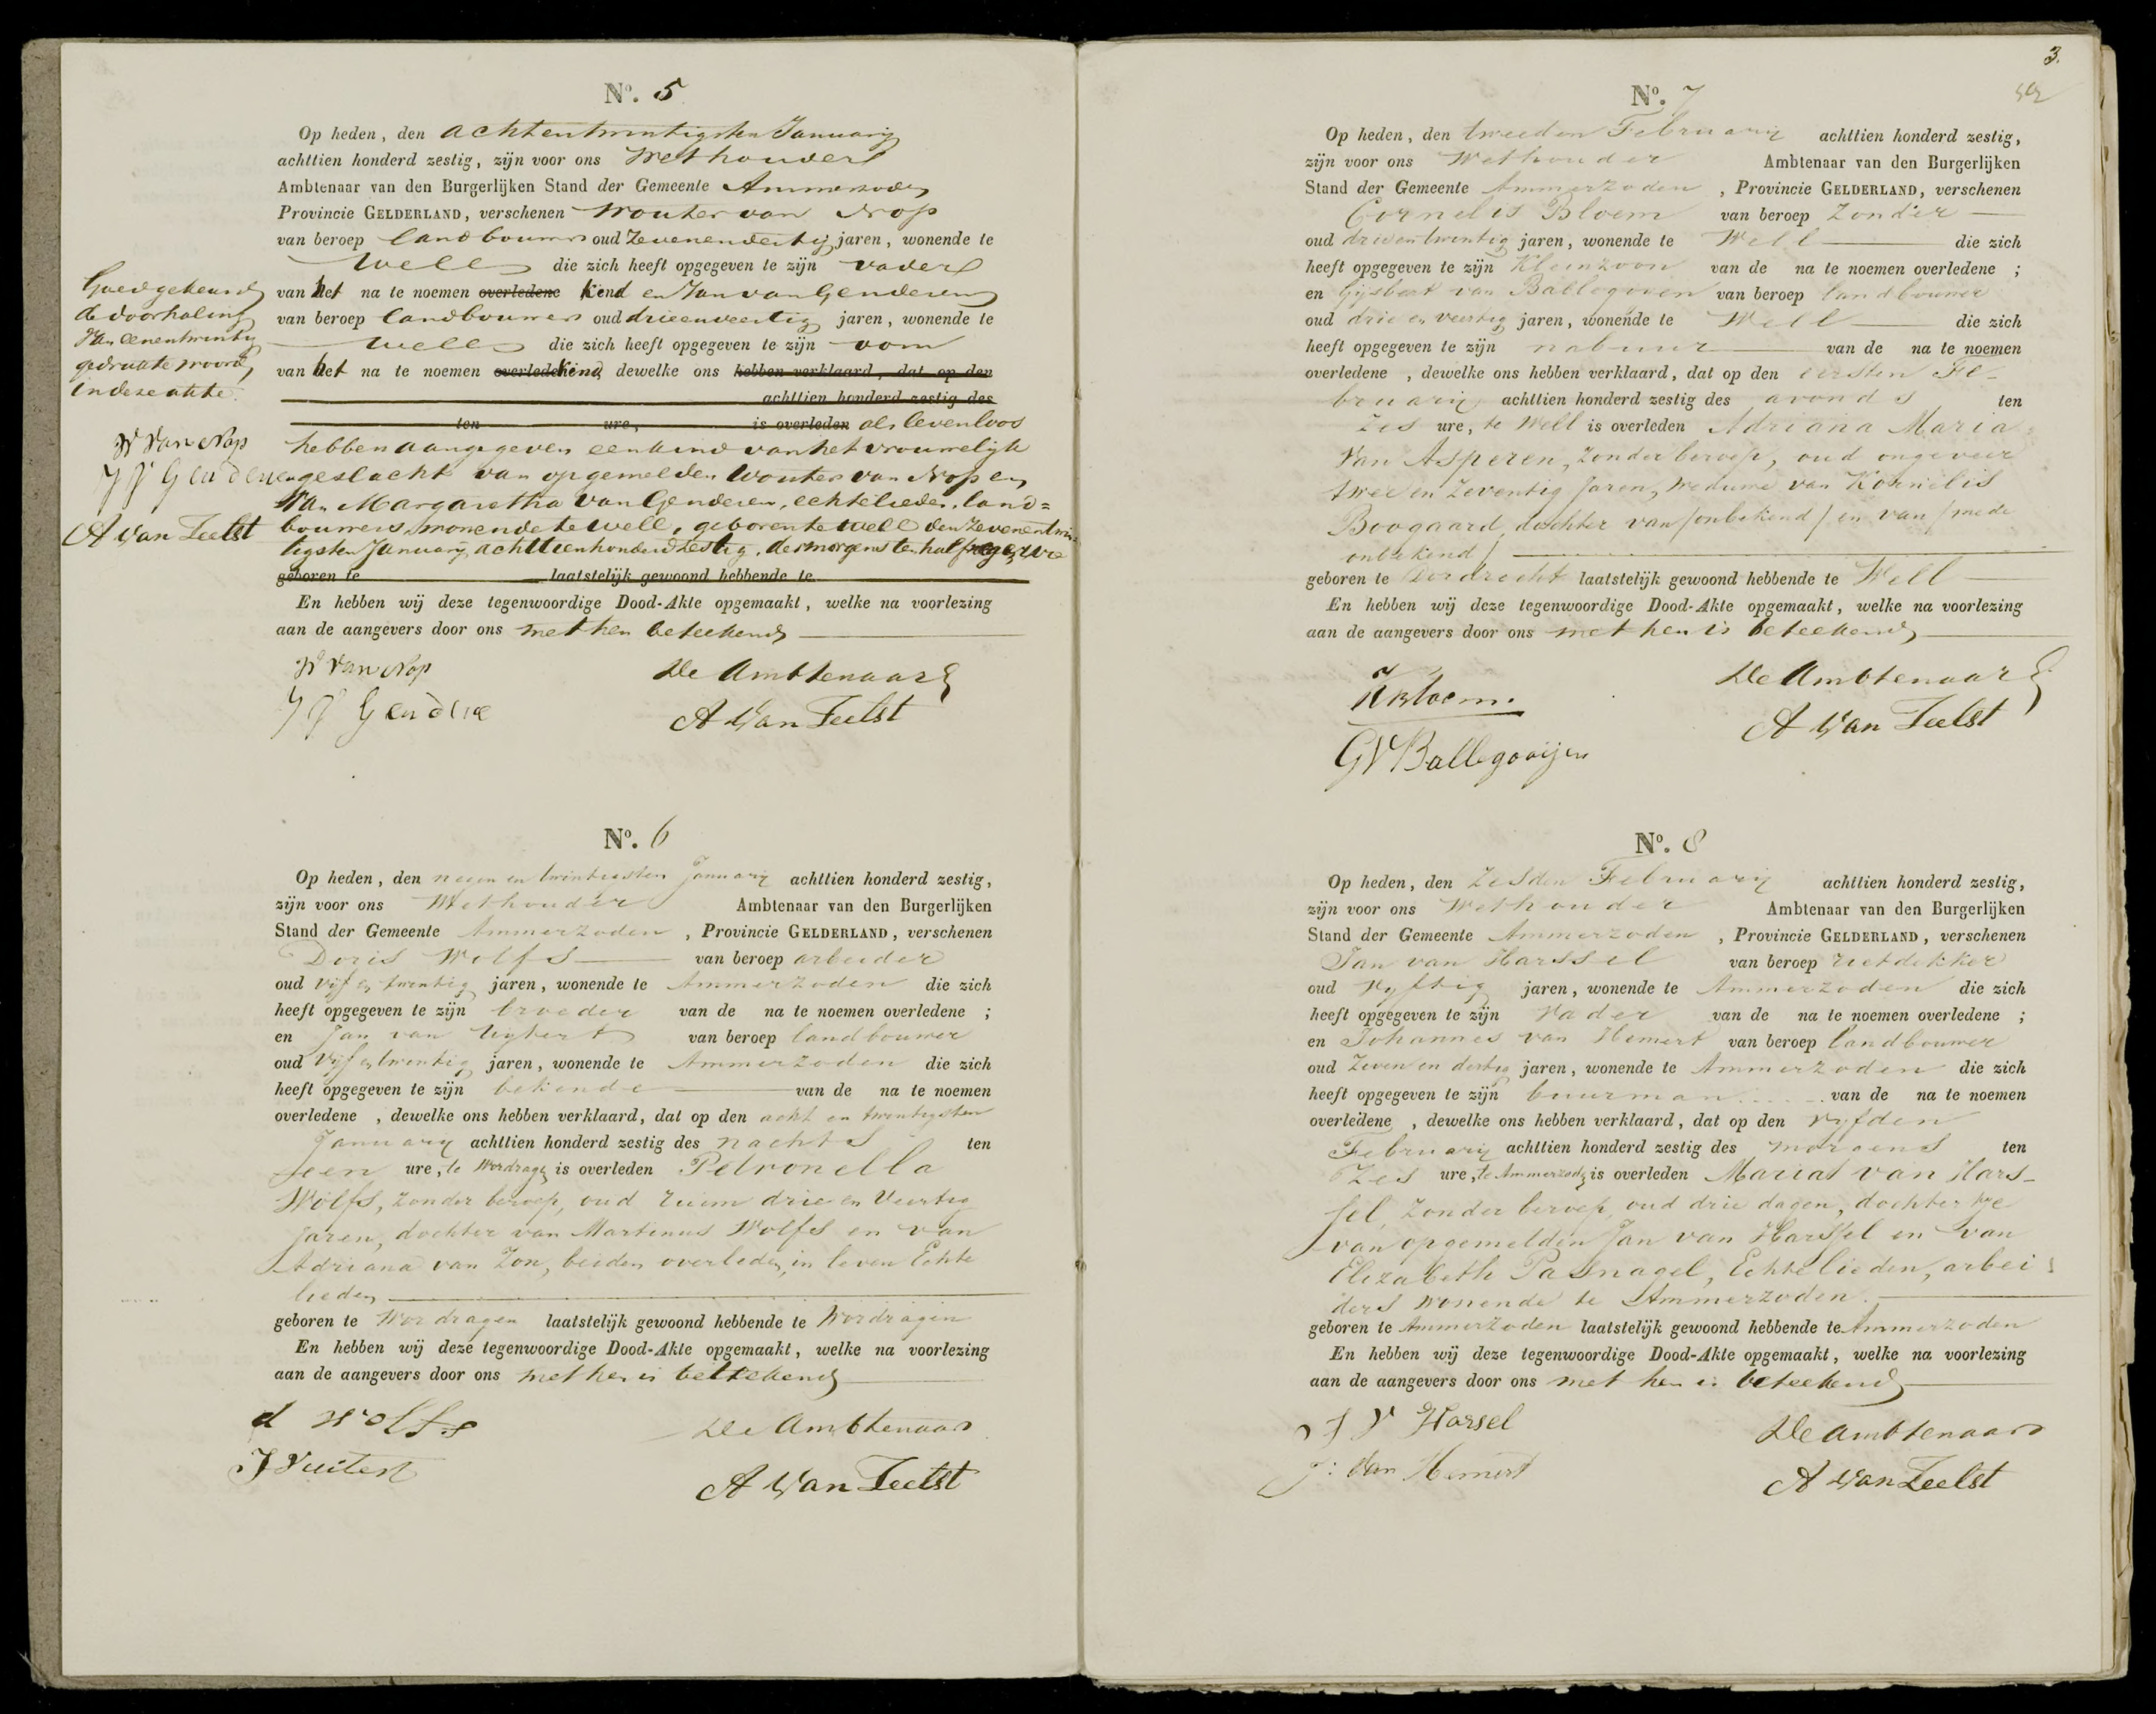 No. 5
Op heden, den achtentwintigsten Januarij
achttien honderd zestig, zijn voor ons Wethouder
Ambtenaar van den Burgerlijken Stand der Gemeente Ammerzoden
Provincie GELDERLAND, verschenen Wouter van Nop
van beroep landbouwer oud zevenendertig jaren, wonende te
Well die zich heeft opgegeven te zijn vader
van het na te noemen overledene kind en Jan van Genderen
van beroep landbouwer oud drieenveertig jaren, wonende te
Well die zich heeft opgegeven te zijn oom
van het na te noemen overledene kind, dewelke ons hebben verklaard, dat op den
achttien honderd zestig des
ten ure, is overleden als levenloos
hebben aangegeven een kind van het vrouwelijk
geslacht van opgemelden Wouter van Nop en
van Margaretha van Genderen, echtelieden, land=
bouwers, wonende te Well, geboren te Well den zevenentwin-
tigsten Januarij achttienhonderd zestig, des morgens ten half negen ure
geboren te laatstelijk gewoond hebbende te
En hebben wij deze tegenwoordige Dood-Akte opgemaakt, welke na voorlezing
aan de aangevers door ons met hen beteekend
W van Nop
J V Genderen
De Ambtenaar
A van Zeelst
Goedgekeurd
de doorhaling
van eenentwintig
gedrukte woorden
in deze akte.
W van Nop
J V Genderen
A van Zeelst
No. 6
Op heden, den negen en twintigsten Januarij achttien honderd zestig,
zijn voor ons Wethouder Ambtenaar van den Burgerlijken
Stand der Gemeente Ammerzoden, Provincie GELDERLAND, verschenen
Doris Wolfs van beroep arbeider
oud vijf en twintig jaren, wonende te Ammerzoden die zich
heeft opgegeven te zijn broeder van de na te noemen overledene ;
en Jan van Uytert van beroep landbouwer
oud vijf en twintig jaren, wonende te Ammerzoden die zich
heeft opgegeven te zijn bekende van de na te noemen
overledene , dewelke ons hebben verklaard, dat op den acht en twintigsten
Januarij achttien honderd zestig des nachts ten
een ure, te Wordragen is overleden Petronella
Wolfs, zonder beroep, oud ruim drie en veertig
jaren, dochter van Martinus Wolfs en van
Adriana van Zon, beiden overleden, in leven Echte
lieden
geboren te Wordragen laatstelijk gewoond hebbende te Wordragen
En hebben wij deze tegenwoordige Dood-Akte opgemaakt, welke na voorlezing
aan de aangevers door ons met hen is beteekend
d Wolfs
J V uitert
De Ambtenaar
A van Zeelst
3.
No. 7
Op heden, den tweeden Februarij achttien honderd zestig,
zijn voor ons Wethouder Ambtenaar van den Burgerlijken
Stand der Gemeente Ammerzoden, Provincie GELDERLAND, verschenen
Cornelis Bloem van beroep zonder
oud drie en twintig jaren, wonende te Well die zich
heeft opgegeven te zijn Kleinzoon van de na te noemen overledene ;
en Gijsbert van Ballegoien van beroep landbouwer
oud drie en veertig jaren, wonende te Well die zich
heeft opgegeven te zijn nabuur van de na te noemen
overledene , dewelke ons hebben verklaard, dat op den eersten Fe-
bruarij achttien honderd zestig des avonds ten
zes ure, te Well is overleden Adriana Maria
van Asperen, zonder beroep, oud ongeveer
twee en zeventig jaren, weduwe van Kornelis
Boogaard, dochter van /onbekend/ en van /mede
onbekend/
geboren te Dordrecht laatstelijk gewoond hebbende te Well
En hebben wij deze tegenwoordige Dood-Akte opgemaakt, welke na voorlezing
aan de aangevers door ons met hen is beteekend
K Bloem.
G V Ballegooijen
De Ambtenaar
A van Zeelst
No. 8
Op heden, den zesden Februarij achttien honderd zestig,
zijn voor ons Wethouder Ambtenaar van den Burgerlijken
Stand der Gemeente Ammerzoden, Provincie GELDERLAND, verschenen
Jan van Harssel van beroep rietdekker
oud vyftig jaren, wonende te Ammerzoden die zich
heeft opgegeven te zijn Vader van de na te noemen overledene ;
en Johannes van Hemert van beroep landbouwer
oud zeven en dertig jaren, wonende te Ammerzoden die zich
heeft opgegeven te zijn buurman van de na te noemen
overledene , dewelke ons hebben verklaard, dat op den vyfden
Februarij achttien honderd zestig des morgens ten
zes ure, te Ammerzoden is overleden Maria van Hars-
sel, zonder beroep, oud drie dagen, dochtertje
van opgemelden Jan van Harssel en van
Elizabeth Pasnagel, Echtelieden, arbei
ders wonende te Ammerzoden.
geboren te Ammerzoden laatstelijk gewoond hebbende te Ammerzoden
En hebben wij deze tegenwoordige Dood-Akte opgemaakt, welke na voorlezing
aan de aangevers door ons met hen is beteekend
J V Harsel
J: van Hemert
De Ambtenaar
A van Zeelst